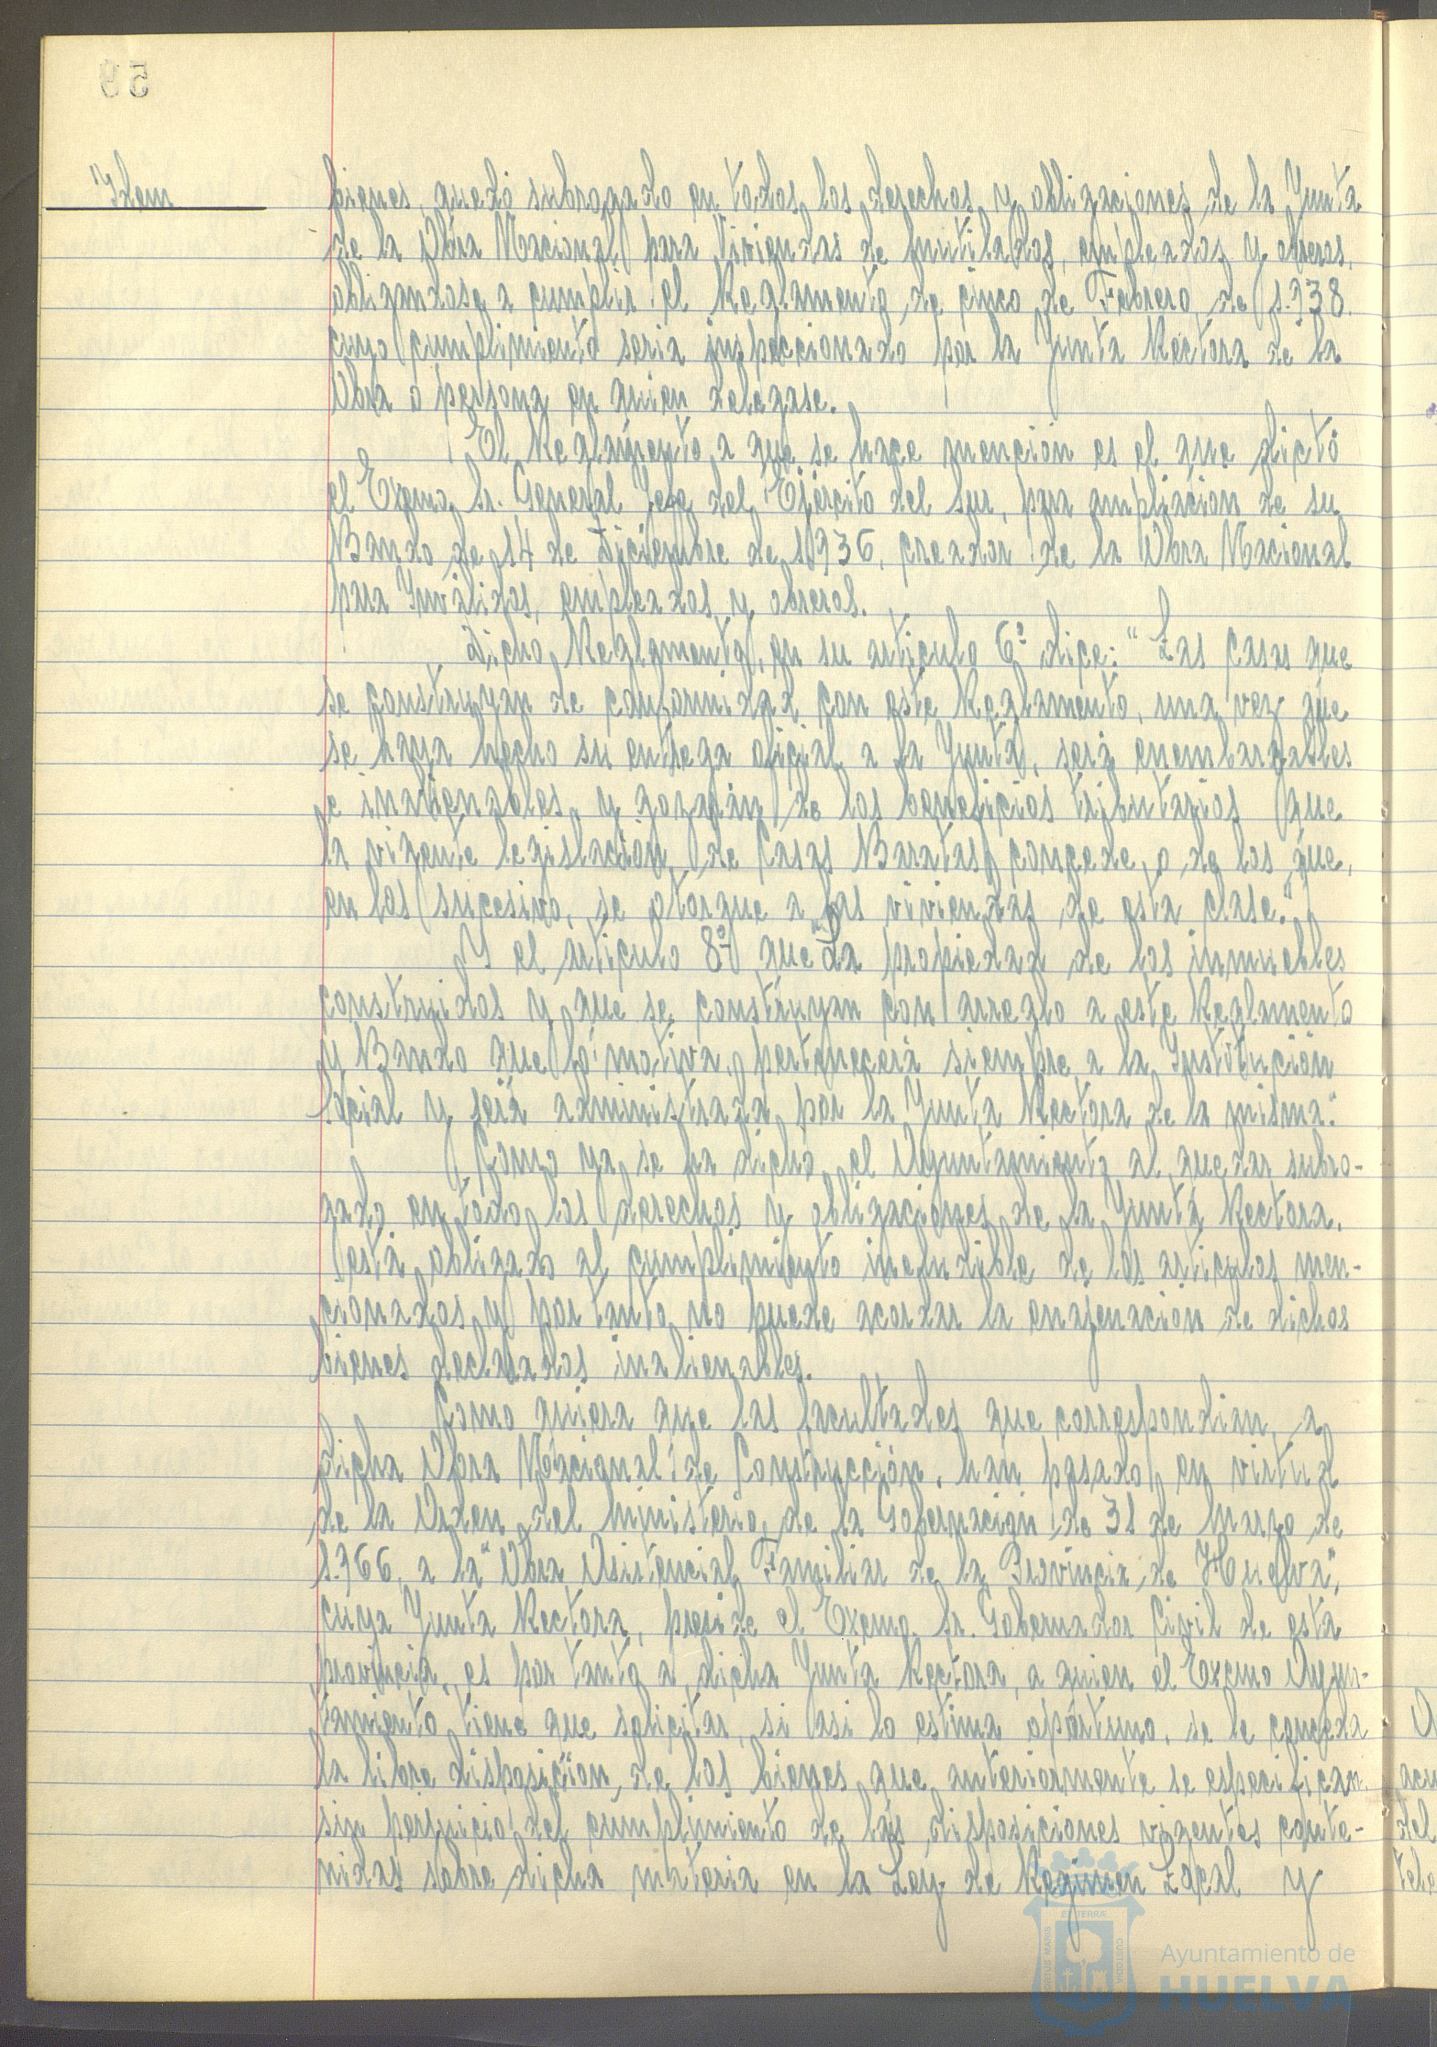 59
Idem
bienes, quedó subrogado en todos los derechos y obligaciones de la Junta
de la Obra Nacional para Viviendas de Mutilados, empleados y obreros,
obligandose a cumplir el Reglamento de cinco de Febrero de 1.938.
cuyo cumplimiento seria inspeccionado por la Junta Rectora de la
Obra o persona en quien delegase.
El Reglamento a que se hace mención es el que dictó
el Excmo. Sr. General Jefe del Ejército del Sur, para ampliacion de su
Bando de 14 de Diciembre de 1.936, creador de la Obra Nacional
para Inválidos, empleados y obreros.
Dicho Reglamento, en su articulo 6º dice: "Las casas que
se construyan de conformidad con este Reglamento, una vez que
se haya hecho su entrega oficial a la Junta, será enembargables
e inalienables y gozarán de los beneficios tributarios que
la vigente legislación de Casas Baratas concede, o de los que,
en los sucesivo, se otorgue a las viviendas de esta clase."
Y el articulo 8º que "La propiedad de los inmuebles
construidos y que se construyan con arreglo a este Reglamento
y Bando que lo motiva, pertenecerá siempre a la Institución
Social y será administrada por la Junta Rectora de la misma."
Como ya se ha dicho, el Ayuntamiento al quedar subro-
gado en todo los derechos y obligaciones de la Junta Rectora,
está obligado al cumplimiento ineludible de los articulos men-
cionados y por tanto no puede acordar la enajenación de dichos
bienes declarados inalienables.
Como quiera que las facultades que correspondian a
dicha Obra Nacional de Construcción, han pasado en virtud
de la Orden del Ministerio de la Gobernación de 31 de Marzo de
1.966, a la "Obra Asistencial Familiar de la Provincia de Huelva",
cuya Junta Rectora, preside el Excmo. Sr. Gobernador Civil de esta
provincia, es por tanto a dicha Junta Rectora, a quien el Excmo Ayun-
tamiento tiene que solicitar, si asi lo estima oportuno, se le conceda
la libre disposición de los bienes que anteriormente se especifican
sin perjuicio del cumplimiento de las disposiciones vigentes conte-
nidas sobre dicha materia en la Ley de Regimen Local y
Ayuntamiento de
HUELVA